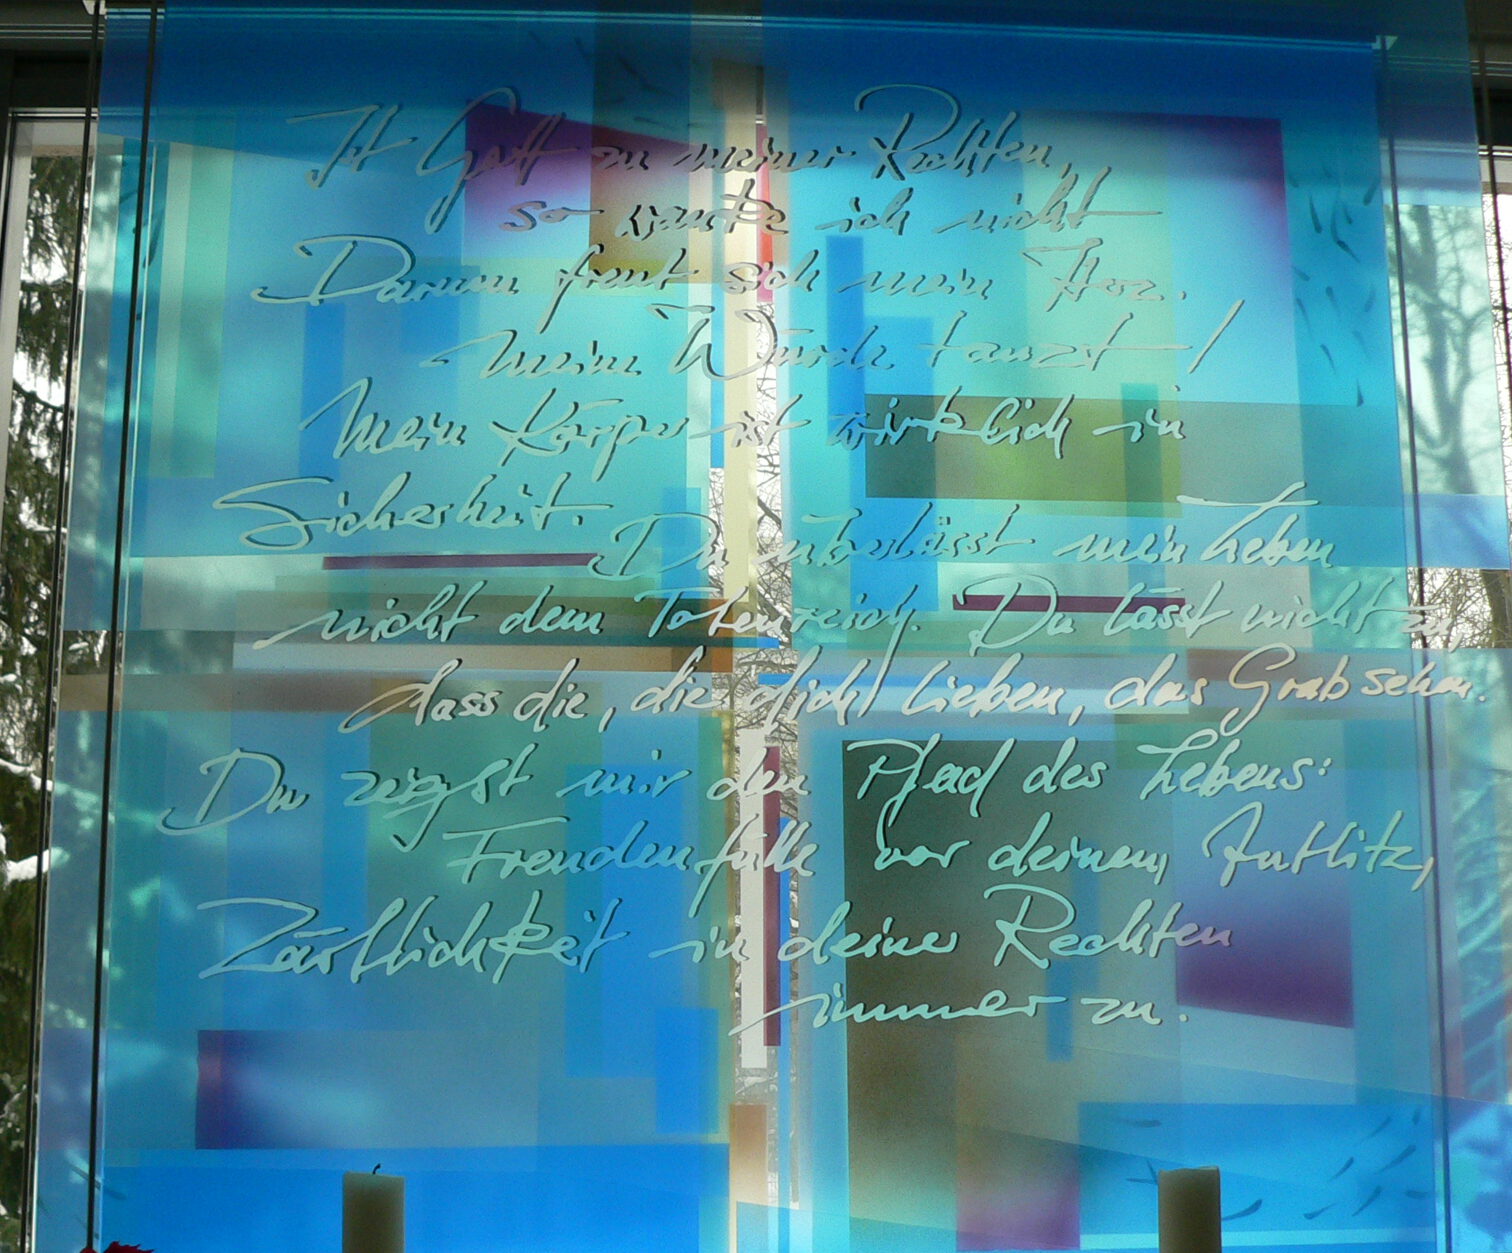 Ist Gott zu meiner Rechten,
so wanke ich nicht
Darum freut sich mein Herz.
Meine Würde tanzt!
Mein Körper ist wirklich in
Sicherheit.
Du überlässt mein Leben
nicht dem Totenreich. Du lässt nicht zu,
dass die, die dich lieben, das Grab sehen.
Du zeigst mir den Pfad des Lebens:
Freudenfülle vor deinem Antlitz,
Zärtlichkeit in deiner Rechten
immer zu.